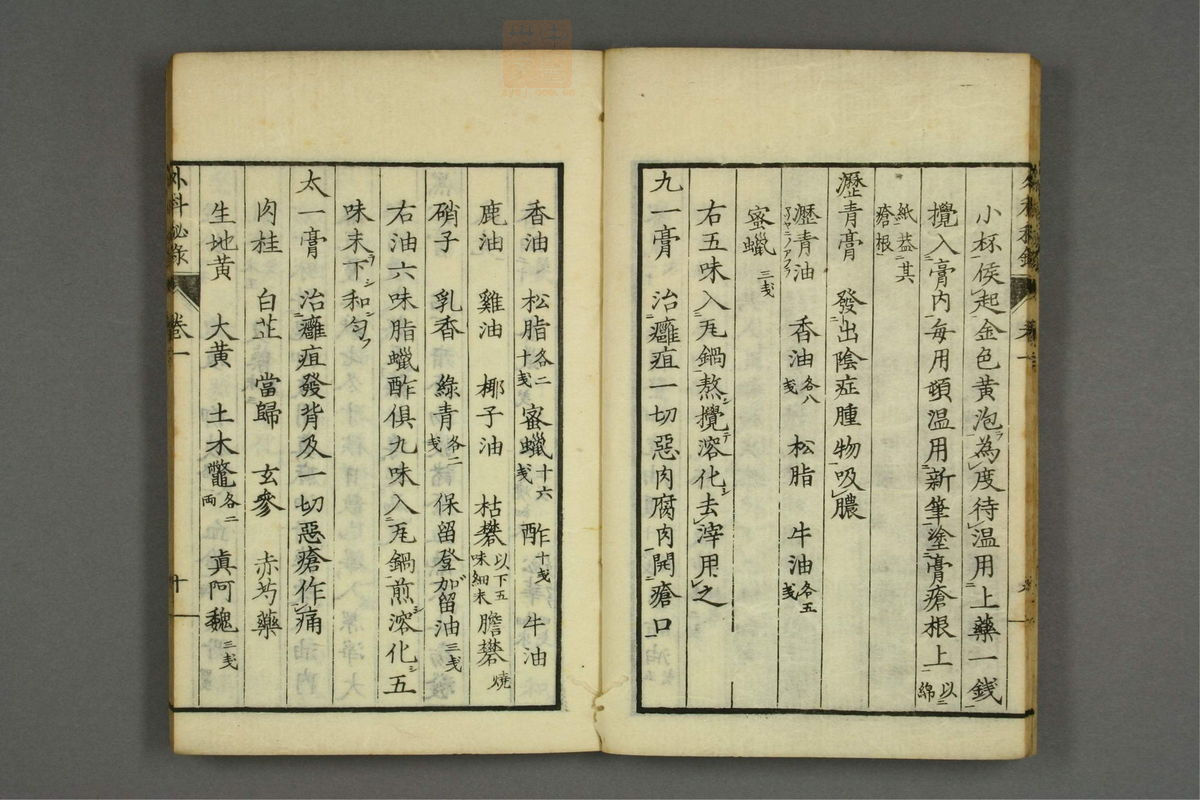 小杯候起金色黄泡為度待温用上藥一銭
攪入膏内毎用頓温用新筆塗膏瘡根上以綿
紙蓋其瘡根
瀝青膏　發出陰症腫物吸膿
瀝青油　香油各八戔　松脂　牛油各五戔
蜜蠟三戔
右五味入瓦鍋熬攪溶化去滓用之
九一膏　治癰疽一切惡肉腐肉開瘡口
香油　松脂各二十戔　蜜蠟十六戔　酢十戔　牛油
鹿油　雞油　椰子油　枯礬以下五味細末　膽礬燒
硝子　乳香　綠青各二戔　保留登加留油三戔
右油六味脂蠟酢俱九味入瓦鍋煎溶化五
味末下和匀
太一膏　治癰疽發背及一切惡瘡作痛
肉桂　白芷　當歸　玄參　赤芍藥
生地黄　大黄　土木鱉各二両　真阿魏三戔
外科秘录　卷一　十